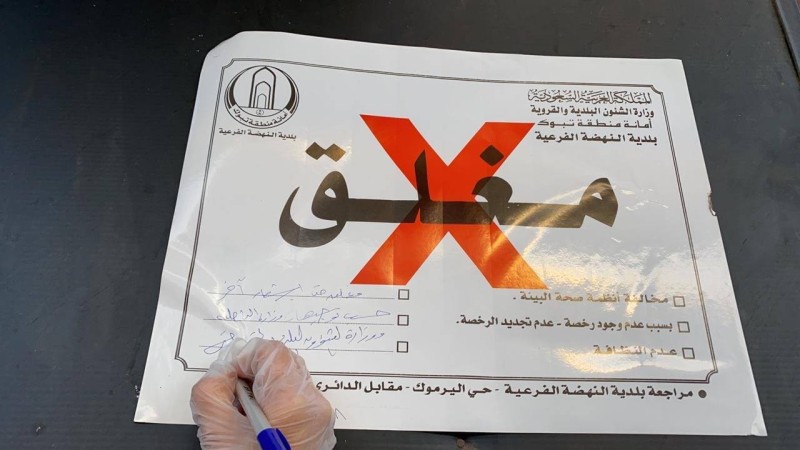 المملكة العربية السعودية
وزارة الشئون البلدية والقروية
أمانة منطقة تبوك
بلدية النهضة الفرعية
أمانة منطقة تبوك
بلدية النهضة الفرعية
مغلق
X
مخالفة أنظمة صحة البيئة .
بسبب عدم وجود رخصة - عدم تجديد الرخصة.
عدم النظافة
مغلق حتى إشعار آخر
حسب توجيهات وزارة الداخلية
ووزارة الشؤون البلدية
● مراجعة بلدية النهضة الفرعية - حي اليرموك - مقابل الدائري